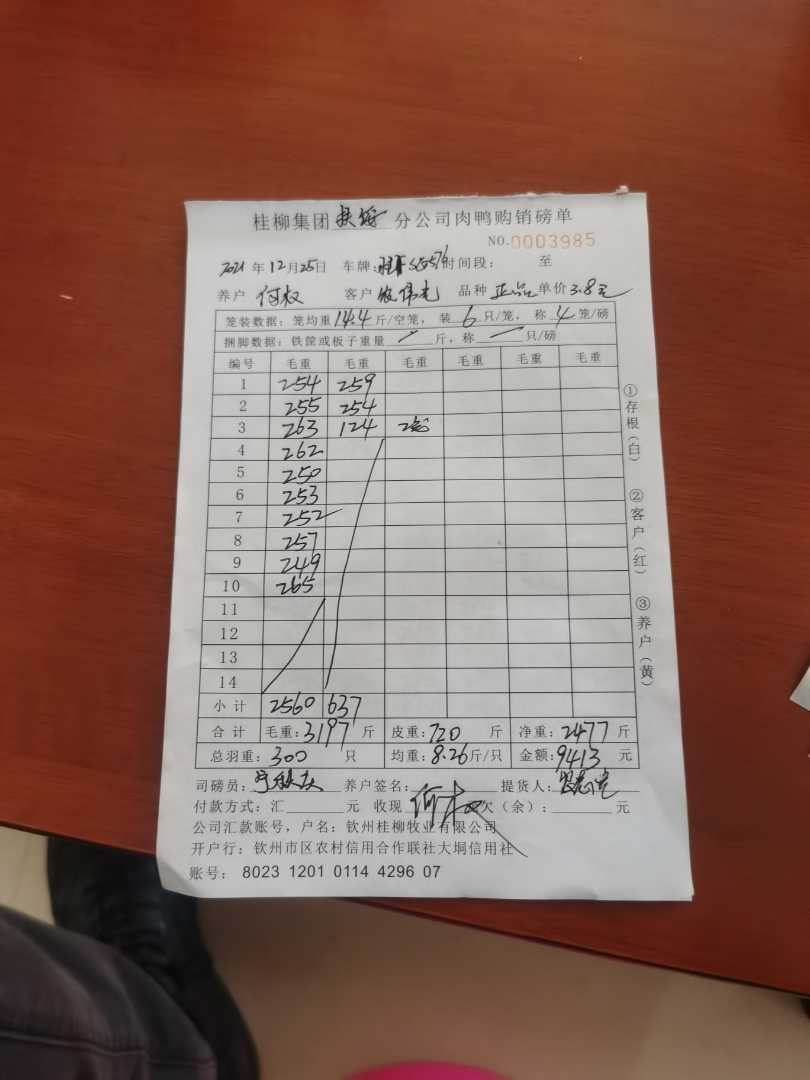 桂柳集团 扶绥 分公司肉鸭购销磅单
NO.0003985
2021 年 12 月 25 日 车牌: 时间段: 至
养户 何权 客户 品种 正品 单价 3.8元
笼装数据: 笼均重 14.4 斤/空笼, 装 6 只/笼, 称 4 笼/磅
捆脚数据: 铁筐或板子重量 / 斤, 称 / 只/磅
编号 毛重 毛重 毛重 毛重 毛重 毛重
1 254 259
2 255 254
3 263 124 2笼
4 262
5 250
6 253
7 252
8 257
9 249
10 265
11
12
13
14
小计 2560 637
合计 毛重: 3197 斤 皮重: 720 斤 净重: 2477 斤
总羽重: 300 只 均重: 8.26 斤/只 金额: 9413 元
司磅员: 养户签名: 何权 提货人:
付款方式: 汇 元 收现 欠(余): 元
公司汇款账号, 户名: 钦州桂柳牧业有限公司
开户行: 钦州市区农村信用合作联社大垌信用社
账号: 8023 1201 0114 4296 07
①存根(白) ②客户(红) ③养户(黄)